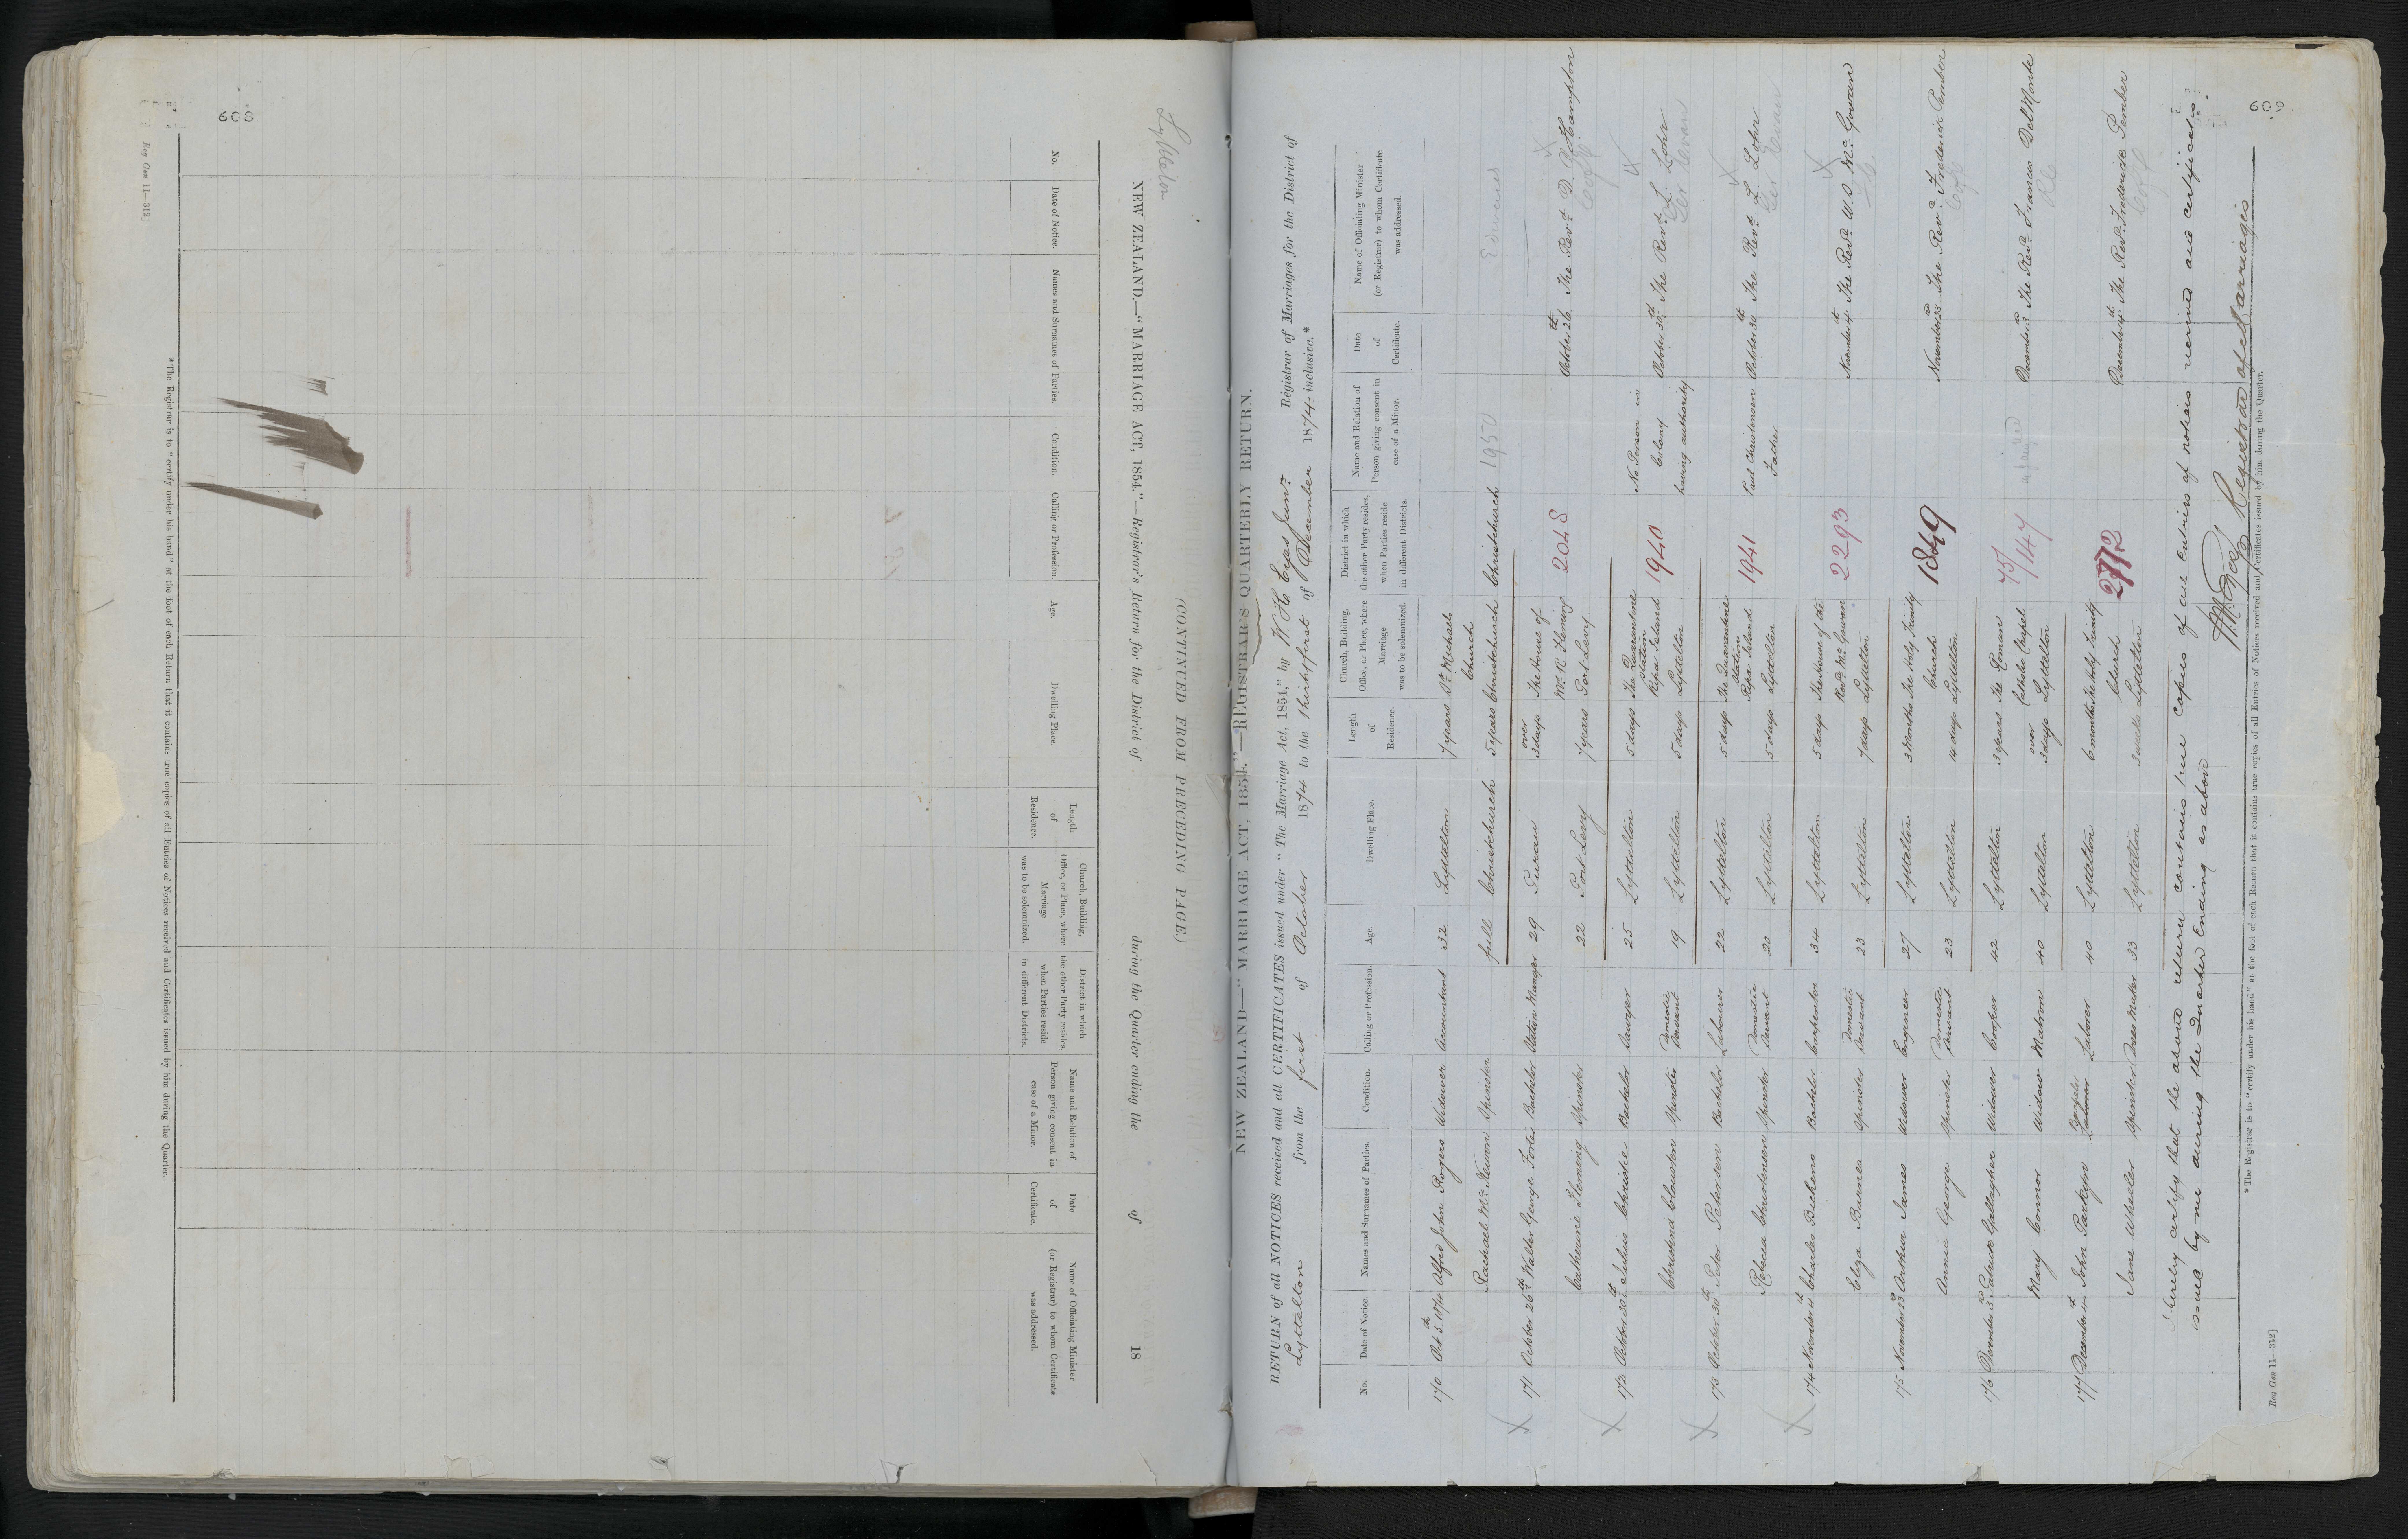 608
Reg Gen 11—312]
Lyttelton
NEW ZEALAND.—"MARRIAGE ACT, 1854."—Registrar's Return for the District of during the Quarter ending the of 18
(CONTINUED FROM PRECEDING PAGE.)
No.
Date of Notice.
Names and Surnames of Parties.
Condition.
Calling or Profession.
Age.
Dwelling Place.
Length
of
Residence.
Church, Building,
Office, or Place, where
Marriage
was to be solemnized.
District in which
the other Party resides,
when Parties reside
in different Districts.
Name and Relation of
Person giving consent in
case of a Minor.
Date
of
Certificate.
Name of Officiating Minister
(or Registrar) to whom Certificate
was addressed.
*The Registrar is to "certify under his hand" at the foot of each Return that it contains true copies of all Entries of Notices received and Certificates issued by him during the Quarter.
609
NEW ZEALAND—"MARRIAGE ACT, 1854."—REGISTRAR'S QUARTERLY RETURN.
RETURN of all NOTICES received and all CERTIFICATES issued under "The Marriage Act, 1854," by W H Eyes Junr. Registrar of Marriages for the District of
Lyttelton from the first of October 1874 to the thirtyfirst of December 1874 inclusive.*
No.
Date of Notice.
Names and Surnames of Parties.
Condition.
Calling or Profession.
Age.
Dwelling Place.
Length
of
Residence.
Church, Building,
Office, or Place, where
Marriage
was to be solemnized.
District in which
the other Party resides,
when Parties reside
in different Districts.
Name and Relation of
Person giving consent in
case of a Minor.
Date
of
Certificate.
Name of Officiating Minister
(or Registrar) to whom Certificate
was addressed.
170 Oct 5th 1874 Alfred John Rogers Widower Accountant 32 Lyttelton 7 years St Michaels
Church
Rachael McKeown Spinster full Christchurch 5 years Christchurch Christchurch 1950
171 October 26th Walter George Forter Bachelor Station Manager 29 Purau over 3 days The House of October 26th The Revd D. Hampton
Mr R Fleming
Catherine Fleming Spinster 22 Port Levy 7 years Port Levy 2048 CofE
172 October 30th Julius Christie Bachelor Sawyer 25 Lyttelton 5 days The Quarantine No Person in
Station
Ripa Island 1940 Colony October 30th The Revd L. Lohr
Christina Clouston Spinster Domestic Servant 19 Lyttelton 5 days Lyttelton having authority Ger Evan
173 October 30th Peter Petersen Bachelor Labourer 22 Lyttelton 5 days The Quarantine Paul Christensen October 30th The Revd L Lohr
Station
Ripa Island 1941 Father
Rebecca Christensen Spinster Domestic Servant 20 Lyttelton 5 days Lyttelton Ger Evan
174 November 4th Charles Bickens Bachelor Carpenter 34 Lyttelton 5 days The House of the November 4th The Revd W.S. McGowan
Revd McGowan
Eliza Barnes Spinster Domestic Servant 23 Lyttelton 7 days Lyttelton 2293
175 November 23d Arthur James Widower Engineer 27 Lyttelton 3 Months The Holy Trinity November 23d The Revd Frederick Pember
Church
Annie George Spinster Domestic Servant 23 Lyttelton 14 days Lyttelton 1849 CofE
176 December 3d Patrick Gallagher Widower Cooper 42 Lyttelton 3 years The Roman December 3d The Revd Francis Del Monte
Catholic Chapel
Mary Connor Widow Matron 40 Lyttelton over 3 days Lyttelton 75/147 RC
177 December 4th John Parkyn Bachelor Laborer 40 Lyttelton 6 months The Holy Trinity December 4th The Revd Frederick Pember
Church
Jane Wheeler Spinster Dress Maker 33 Lyttelton 3 weeks Lyttelton CofE
I hereby certify that the above return contains true copies of all entries of notices received and certificates
issued by me during the Quarter Ending as above
Registrar of Marriages
*The Registrar is to "certify under his hand" at the foot of each Return that it contains true copies of all Entries of Notices received and Certificates issued by him during the Quarter.
Reg Gen 11—312]